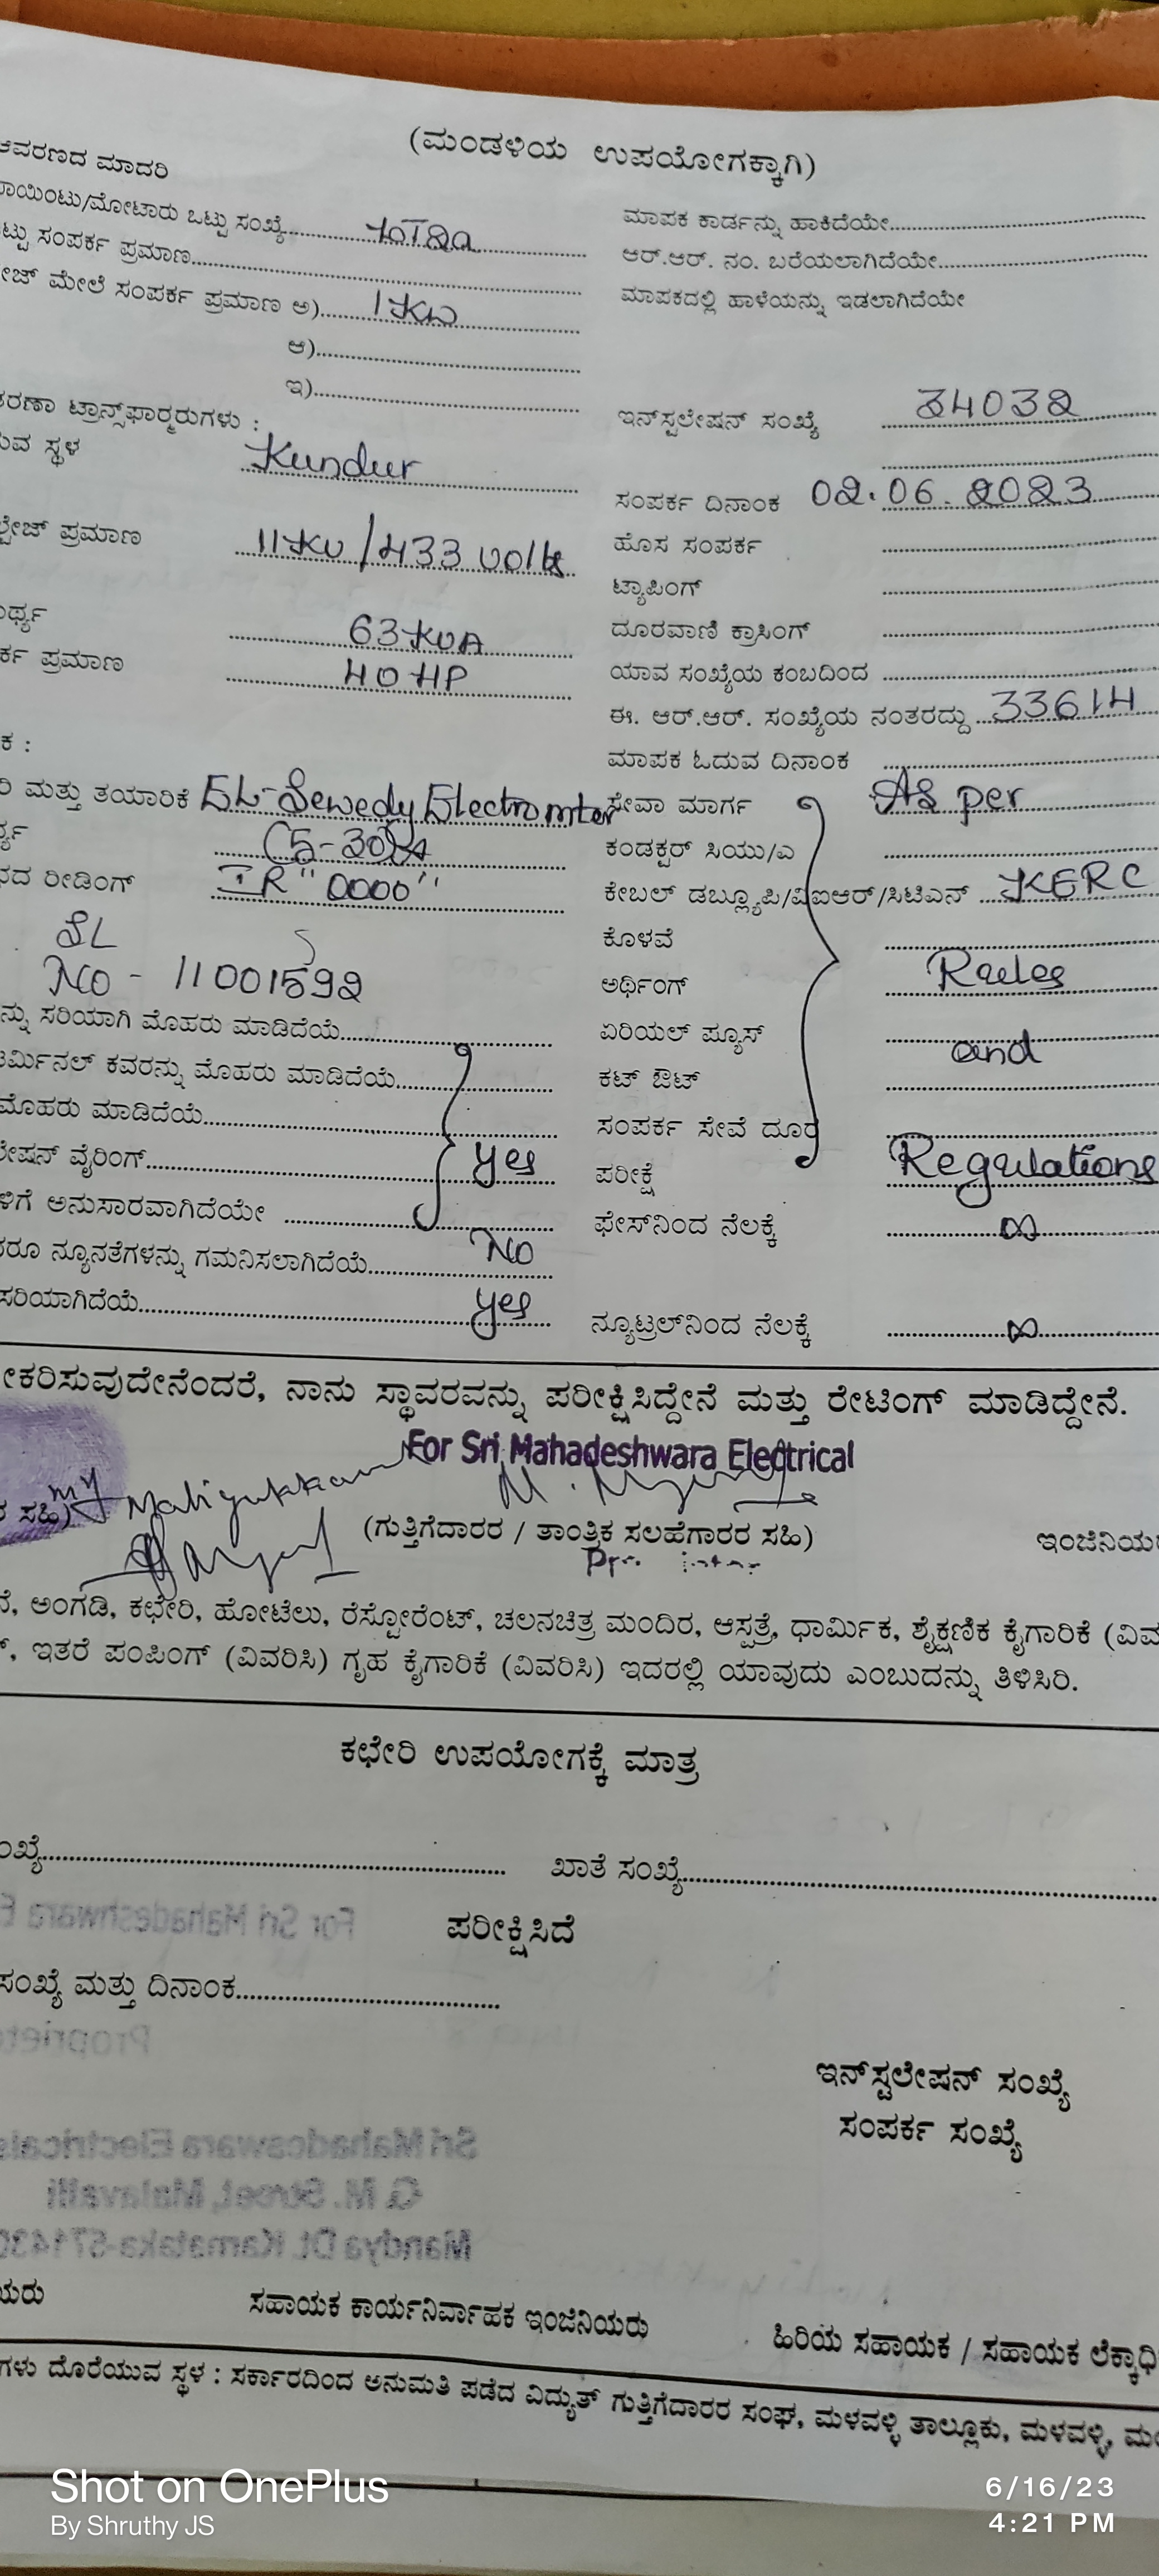 (ಮಂಡಳಿಯ ಉಪಯೋಗಕ್ಕಾಗಿ)
ಆವರಣದ ಮಾದರಿ
ಪಾಯಿಂಟು/ಮೋಟಾರು ಒಟ್ಟು ಸಂಖ್ಯೆ
ಮಾಪಕ ಕಾರ್ಡನ್ನು ಹಾಕಿದೆಯೇ
ಟ್ಟು ಸಂಪರ್ಕ ಪ್ರಮಾಣ
ಆರ್.ಆರ್. ನಂ. ಬರೆಯಲಾಗಿದೆಯೇ
ೇಜ್ ಮೇಲೆ ಸಂಪರ್ಕ ಪ್ರಮಾಣ ಅ) 1KW
ಮಾಪಕದಲ್ಲಿ ಹಾಳೆಯನ್ನು ಇಡಲಾಗಿದೆಯೇ
ಆ)
ಇ)
ತರಣಾ ಟ್ರಾನ್ಸ್‌ಫಾರ್ಮರುಗಳು :
ಇನ್‌ಸ್ಟಲೇಷನ್ ಸಂಖ್ಯೆ 34032
ುವ ಸ್ಥಳ Kundur
ಸಂಪರ್ಕ ದಿನಾಂಕ 02.06.2023
ಲ್ಟೇಜ್ ಪ್ರಮಾಣ 11KV/433 volts
ಹೊಸ ಸಂಪರ್ಕ
ಟ್ಯಾಪಿಂಗ್
ರ್ಥ್ಯ 63KVA
ದೂರವಾಣಿ ಕ್ರಾಸಿಂಗ್
ರ್ಕ ಪ್ರಮಾಣ 40HP
ಯಾವ ಸಂಖ್ಯೆಯ ಕಂಬದಿಂದ
ಈ. ಆರ್.ಆರ್. ಸಂಖ್ಯೆಯ ನಂತರದ್ದು 33614
ಕ :
ಮಾಪಕ ಓದುವ ದಿನಾಂಕ
ರಿ ಮತ್ತು ತಯಾರಿಕೆ EL-Sewedy Electromter
ಸೇವಾ ಮಾರ್ಗ As per
ರ್ಥ್ಯ (5-30)A
ಕಂಡಕ್ಟರ್ ಸಿಯು/ಎ
ನದ ರೀಡಿಂಗ್ IR "0000"
ಕೇಬಲ್ ಡಬ್ಲ್ಯೂಪಿ/ವಿಐಆರ್/ಸಿಟಿಎನ್ KERC
SL
ಕೊಳವೆ
No - 11001592
ಅರ್ಥಿಂಗ್ Rules
ನ್ನು ಸರಿಯಾಗಿ ಮೊಹರು ಮಾಡಿದೆಯೆ
ಏರಿಯಲ್ ಪ್ಯೂಸ್ and
ಟರ್ಮಿನಲ್ ಕವರನ್ನು ಮೊಹರು ಮಾಡಿದೆಯೆ
ಕಟ್ ಔಟ್
ಮೊಹರು ಮಾಡಿದೆಯೆ
ಸಂಪರ್ಕ ಸೇವೆ ದೂರ
ಲೇಷನ್ ವೈರಿಂಗ್ yes
ಪರೀಕ್ಷೆ Regulations
ಳಿಗೆ ಅನುಸಾರವಾಗಿದೆಯೇ
ಫೇಸ್‌ನಿಂದ ನೆಲಕ್ಕೆ ∞
ರೂ ನ್ಯೂನತೆಗಳನ್ನು ಗಮನಿಸಲಾಗಿದೆಯೆ No
ಸರಿಯಾಗಿದೆಯೆ yes
ನ್ಯೂಟ್ರಲ್‌ನಿಂದ ನೆಲಕ್ಕೆ ∞
ೀಕರಿಸುವುದೇನೆಂದರೆ, ನಾನು ಸ್ಥಾವರವನ್ನು ಪರೀಕ್ಷಿಸಿದ್ದೇನೆ ಮತ್ತು ರೇಟಿಂಗ್ ಮಾಡಿದ್ದೇನೆ.
For Sri Mahadeshwara Electrical
ರ ಸಹಿ)
(ಗುತ್ತಿಗೆದಾರರ / ತಾಂತ್ರಿಕ ಸಲಹೆಗಾರರ ಸಹಿ)
ಇಂಜಿನಿಯರ
ನೆ, ಅಂಗಡಿ, ಕಛೇರಿ, ಹೋಟೆಲು, ರೆಸ್ಟೋರೆಂಟ್, ಚಲನಚಿತ್ರ ಮಂದಿರ, ಆಸ್ಪತ್ರೆ, ಧಾರ್ಮಿಕ, ಶೈಕ್ಷಣಿಕ ಕೈಗಾರಿಕೆ (ವಿವ
್, ಇತರೆ ಪಂಪಿಂಗ್ (ವಿವರಿಸಿ) ಗೃಹ ಕೈಗಾರಿಕೆ (ವಿವರಿಸಿ) ಇದರಲ್ಲಿ ಯಾವುದು ಎಂಬುದನ್ನು ತಿಳಿಸಿರಿ.
ಕಛೇರಿ ಉಪಯೋಗಕ್ಕೆ ಮಾತ್ರ
ಂಖ್ಯೆ
ಖಾತೆ ಸಂಖ್ಯೆ
For Sri Mahadeshwara E
ಪರೀಕ್ಷಿಸಿದೆ
ಸಂಖ್ಯೆ ಮತ್ತು ದಿನಾಂಕ
Propriet
ಇನ್‌ಸ್ಟಲೇಷನ್ ಸಂಖ್ಯೆ
ಸಂಪರ್ಕ ಸಂಖ್ಯೆ
Sri Mahadeswara Electricals
G.M. Street, Malavalli
Mandya Dt. Karnataka-571430
ಯರು
ಸಹಾಯಕ ಕಾರ್ಯನಿರ್ವಾಹಕ ಇಂಜಿನಿಯರು
ಹಿರಿಯ ಸಹಾಯಕ / ಸಹಾಯಕ ಲೆಕ್ಕಾಧಿ
ಗಳು ದೊರೆಯುವ ಸ್ಥಳ : ಸರ್ಕಾರದಿಂದ ಅನುಮತಿ ಪಡೆದ ವಿದ್ಯುತ್ ಗುತ್ತಿಗೆದಾರರ ಸಂಘ, ಮಳವಳ್ಳಿ ತಾಲ್ಲೂಕು, ಮಳವಳ್ಳಿ, ಮಂ
Shot on OnePlus
By Shruthy JS
6/16/23
4:21 PM